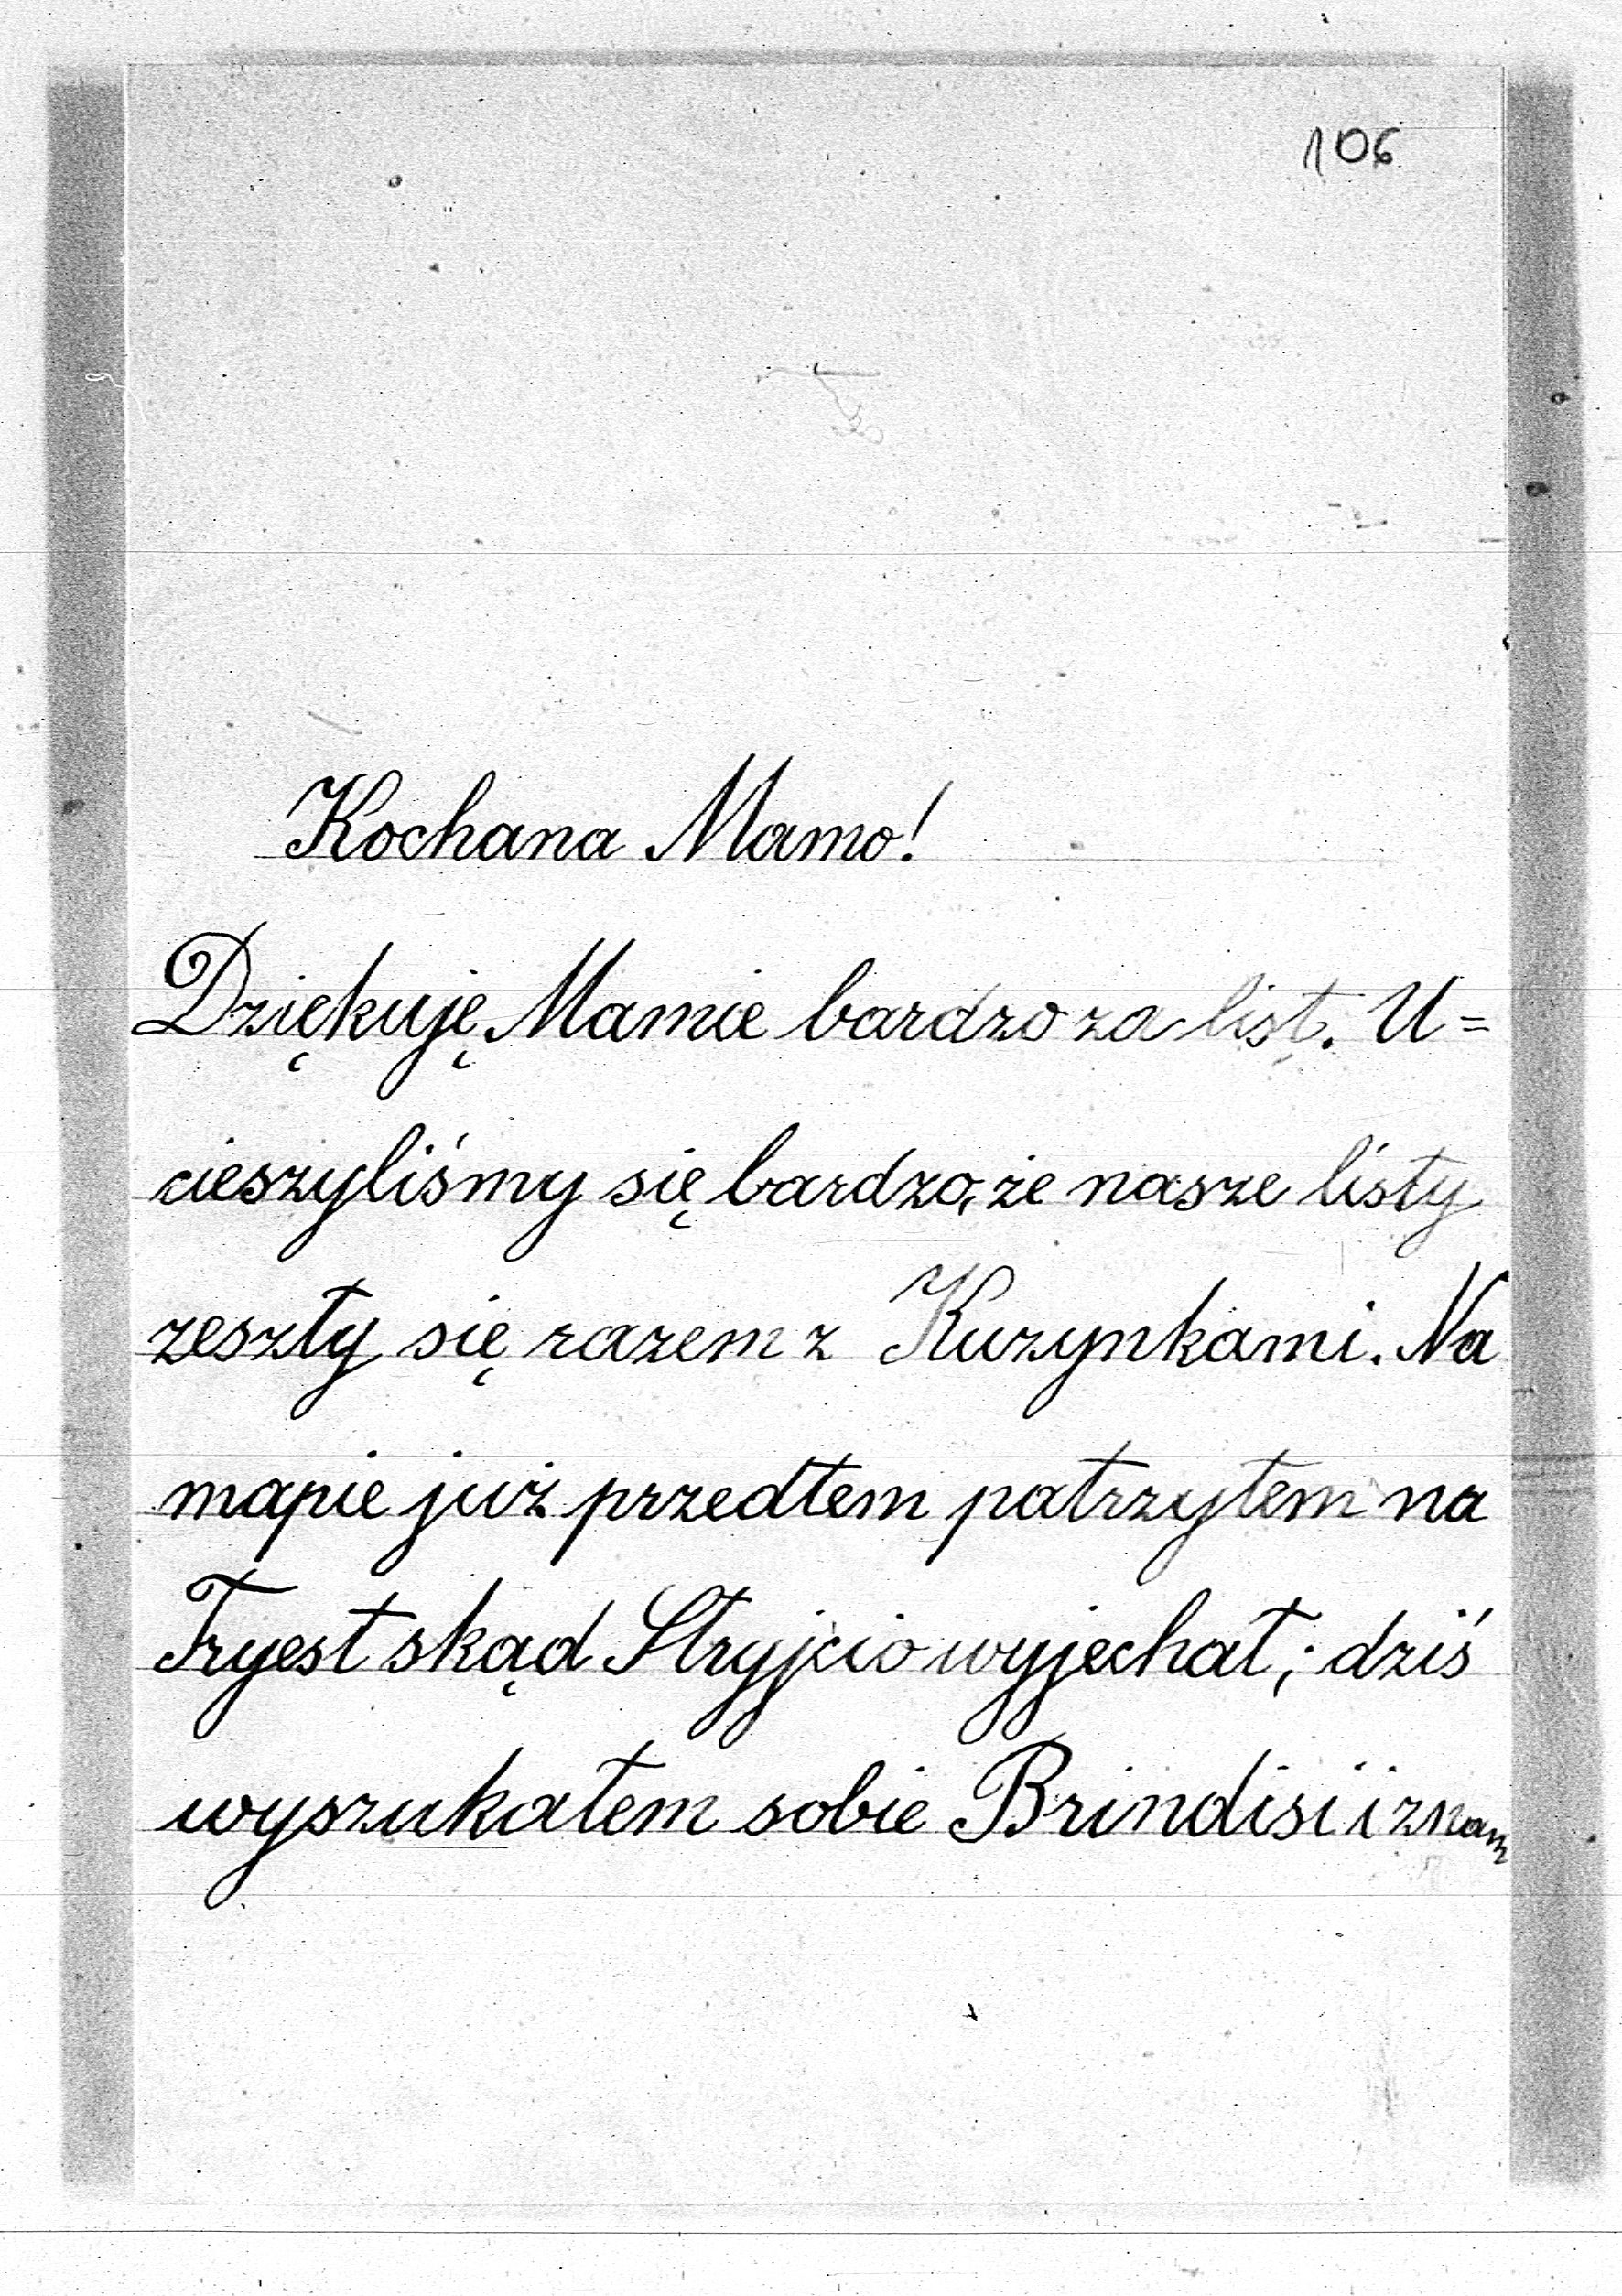 106
Kochana Mamo!
Dziękuję Mamie bardzo za list. U=
cieszyliśmy się bardzo, że nasze listy
zeszły się razem z Kuzynkami. Na
mapie już przedtem patrzyłem na
Tryest skąd Stryjcio wyjechał; dziś
wyszukałem sobie Brindisi i znam